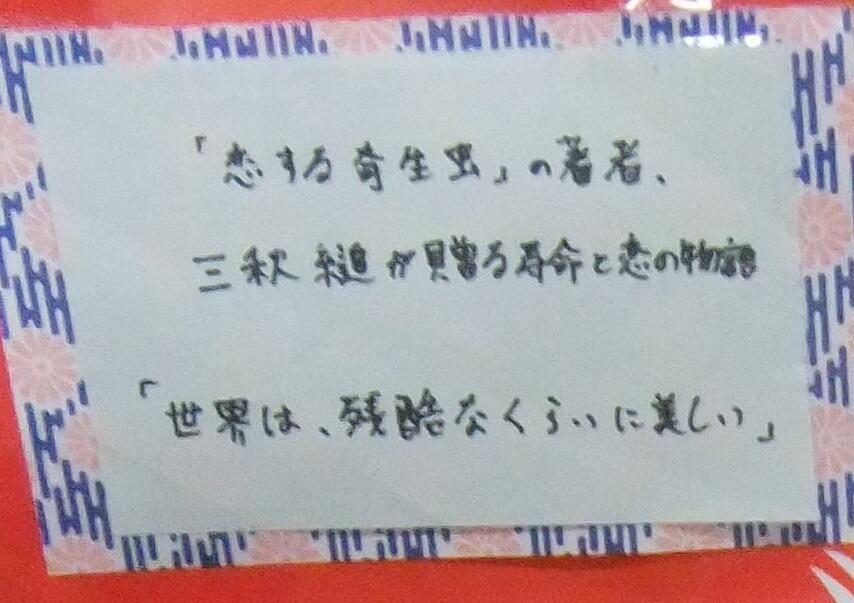 「恋する寄生虫」の著者、
三秋縋が贈る寿命と恋の物語
「世界は、残酷なくらいに美しい」